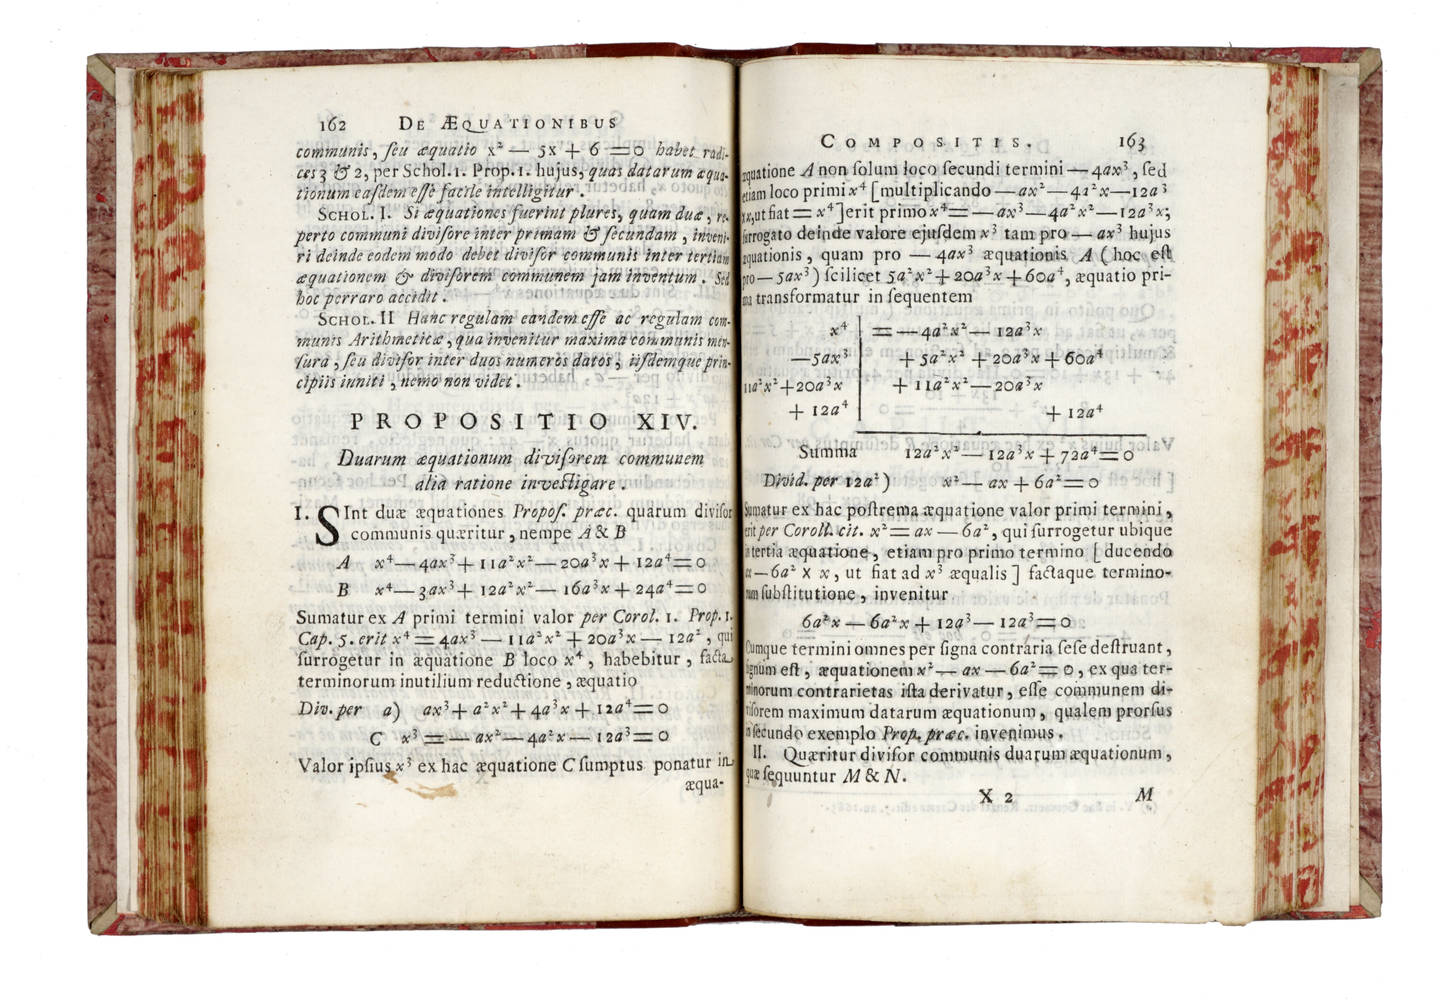 162 DE ÆQUATIONIBUS
communis, ſeu æquatio x² — 5x + 6 = 0 habet radi-
ces 3 & 2, per Schol. 1. Prop. 1. hujus, quas datarum æqua-
tionum eaſdem eſſe facile intelligitur.
SCHOL. I. Si æquationes fuerint plures, quam duæ, re-
perto communi diviſore inter primam & ſecundam, inveni-
ri deinde eodem modo debet diviſor communis inter tertiam
æquationem & diviſorem communem jam inventum. Sed
hoc perraro accidit.
SCHOL. II Hanc regulam eandem eſſe ac regulam com-
munis Arithmeticæ, qua invenitur maxima communis men-
ſura, ſeu diviſor inter duos numeros datos, iiſdemque prin-
cipiis inniti, nemo non videt.
PROPOSITIO XIV.
Duarum æquationum diviſorem communem
aliâ ratione inveſtigare.
I. SInt duæ æquationes Propoſ. præc. quarum diviſor
communis quæritur, nempe A & B
A x⁴ — 4ax³ + 11a²x² — 20a³x + 12a⁴ = 0
B x⁴ — 3ax³ + 12a²x² — 16a³x + 24a⁴ = 0
Sumatur ex A primi termini valor per Corol. 1. Prop. 1.
Cap. 5. erit x⁴ = 4ax³ — 11a²x² + 20a³x — 12a², qui
ſurrogetur in æquatione B loco x⁴, habebitur, facta
terminorum inutilium reductione, æquatio
Div. per a) ax³ + a²x² + 4a³x + 12a⁴ = 0
C x³ = — ax² — 4a²x — 12a³ = 0
Valor ipſius x³ ex hac æquatione C ſumptus ponatur in
æqua-
COMPOSITIS. 163
æquatione A non ſolum loco ſecundi termini — 4ax³, ſed
etiam loco primi x⁴ [multiplicando — ax² — 4a²x — 12a³
x x, ut fiat = x⁴] erit primo x⁴ = — ax³ — 4a²x² — 12a³x;
ſurrogato deinde valore ejuſdem x³ tam pro — ax³ hujus
æquationis, quam pro — 4ax³ æquationis A (hoc eſt
pro — 5ax³) ſcilicet 5a²x² + 20a³x + 60a⁴, æquatio pri-
ma transformatur in ſequentem
x⁴ | = — 4a²x² — 12a³x
— 5ax³ | + 5a²x² + 20a³x + 60a⁴
11a²x² + 20a³x | + 11a²x² — 20a³x
+ 12a⁴ | + 12a⁴
Summa 12a²x² — 12a³x + 72a⁴ = 0
Divid. per 12a²) x² — ax + 6a² = 0
Sumatur ex hac poſtrema æquatione valor primi termini,
erit per Coroll. cit. x² = ax — 6a², qui ſurrogetur ubique
in tertia æquatione, etiam pro primo termino [ducendo
ax — 6a² x x, ut fiat ad x³ æqualis] factaque termino-
rum ſubſtitutione, invenitur
6a²x — 6a²x + 12a³ — 12a³ = 0
Cumque termini omnes per ſigna contraria ſeſe deſtruant,
ſignum eſt, æquationem x² — ax — 6a² = 0, ex qua ter-
minorum contrarietas iſta derivatur, eſſe communem di-
viſorem maximum datarum æquationum, qualem prorſus
in ſecundo exemplo Prop. præc. invenimus.
II. Quæritur diviſor communis duarum æquationum,
quæ ſequuntur M & N.
X 2 M